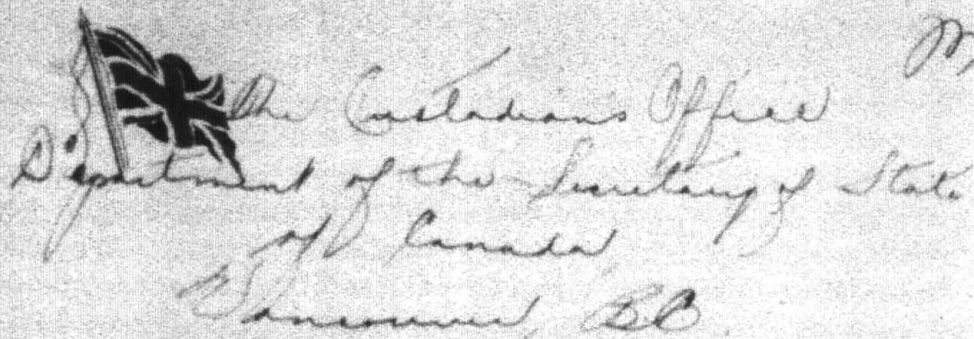 The Custodian's Office
Department of the Secretary of State
of Canada
Vancouver, B.C.